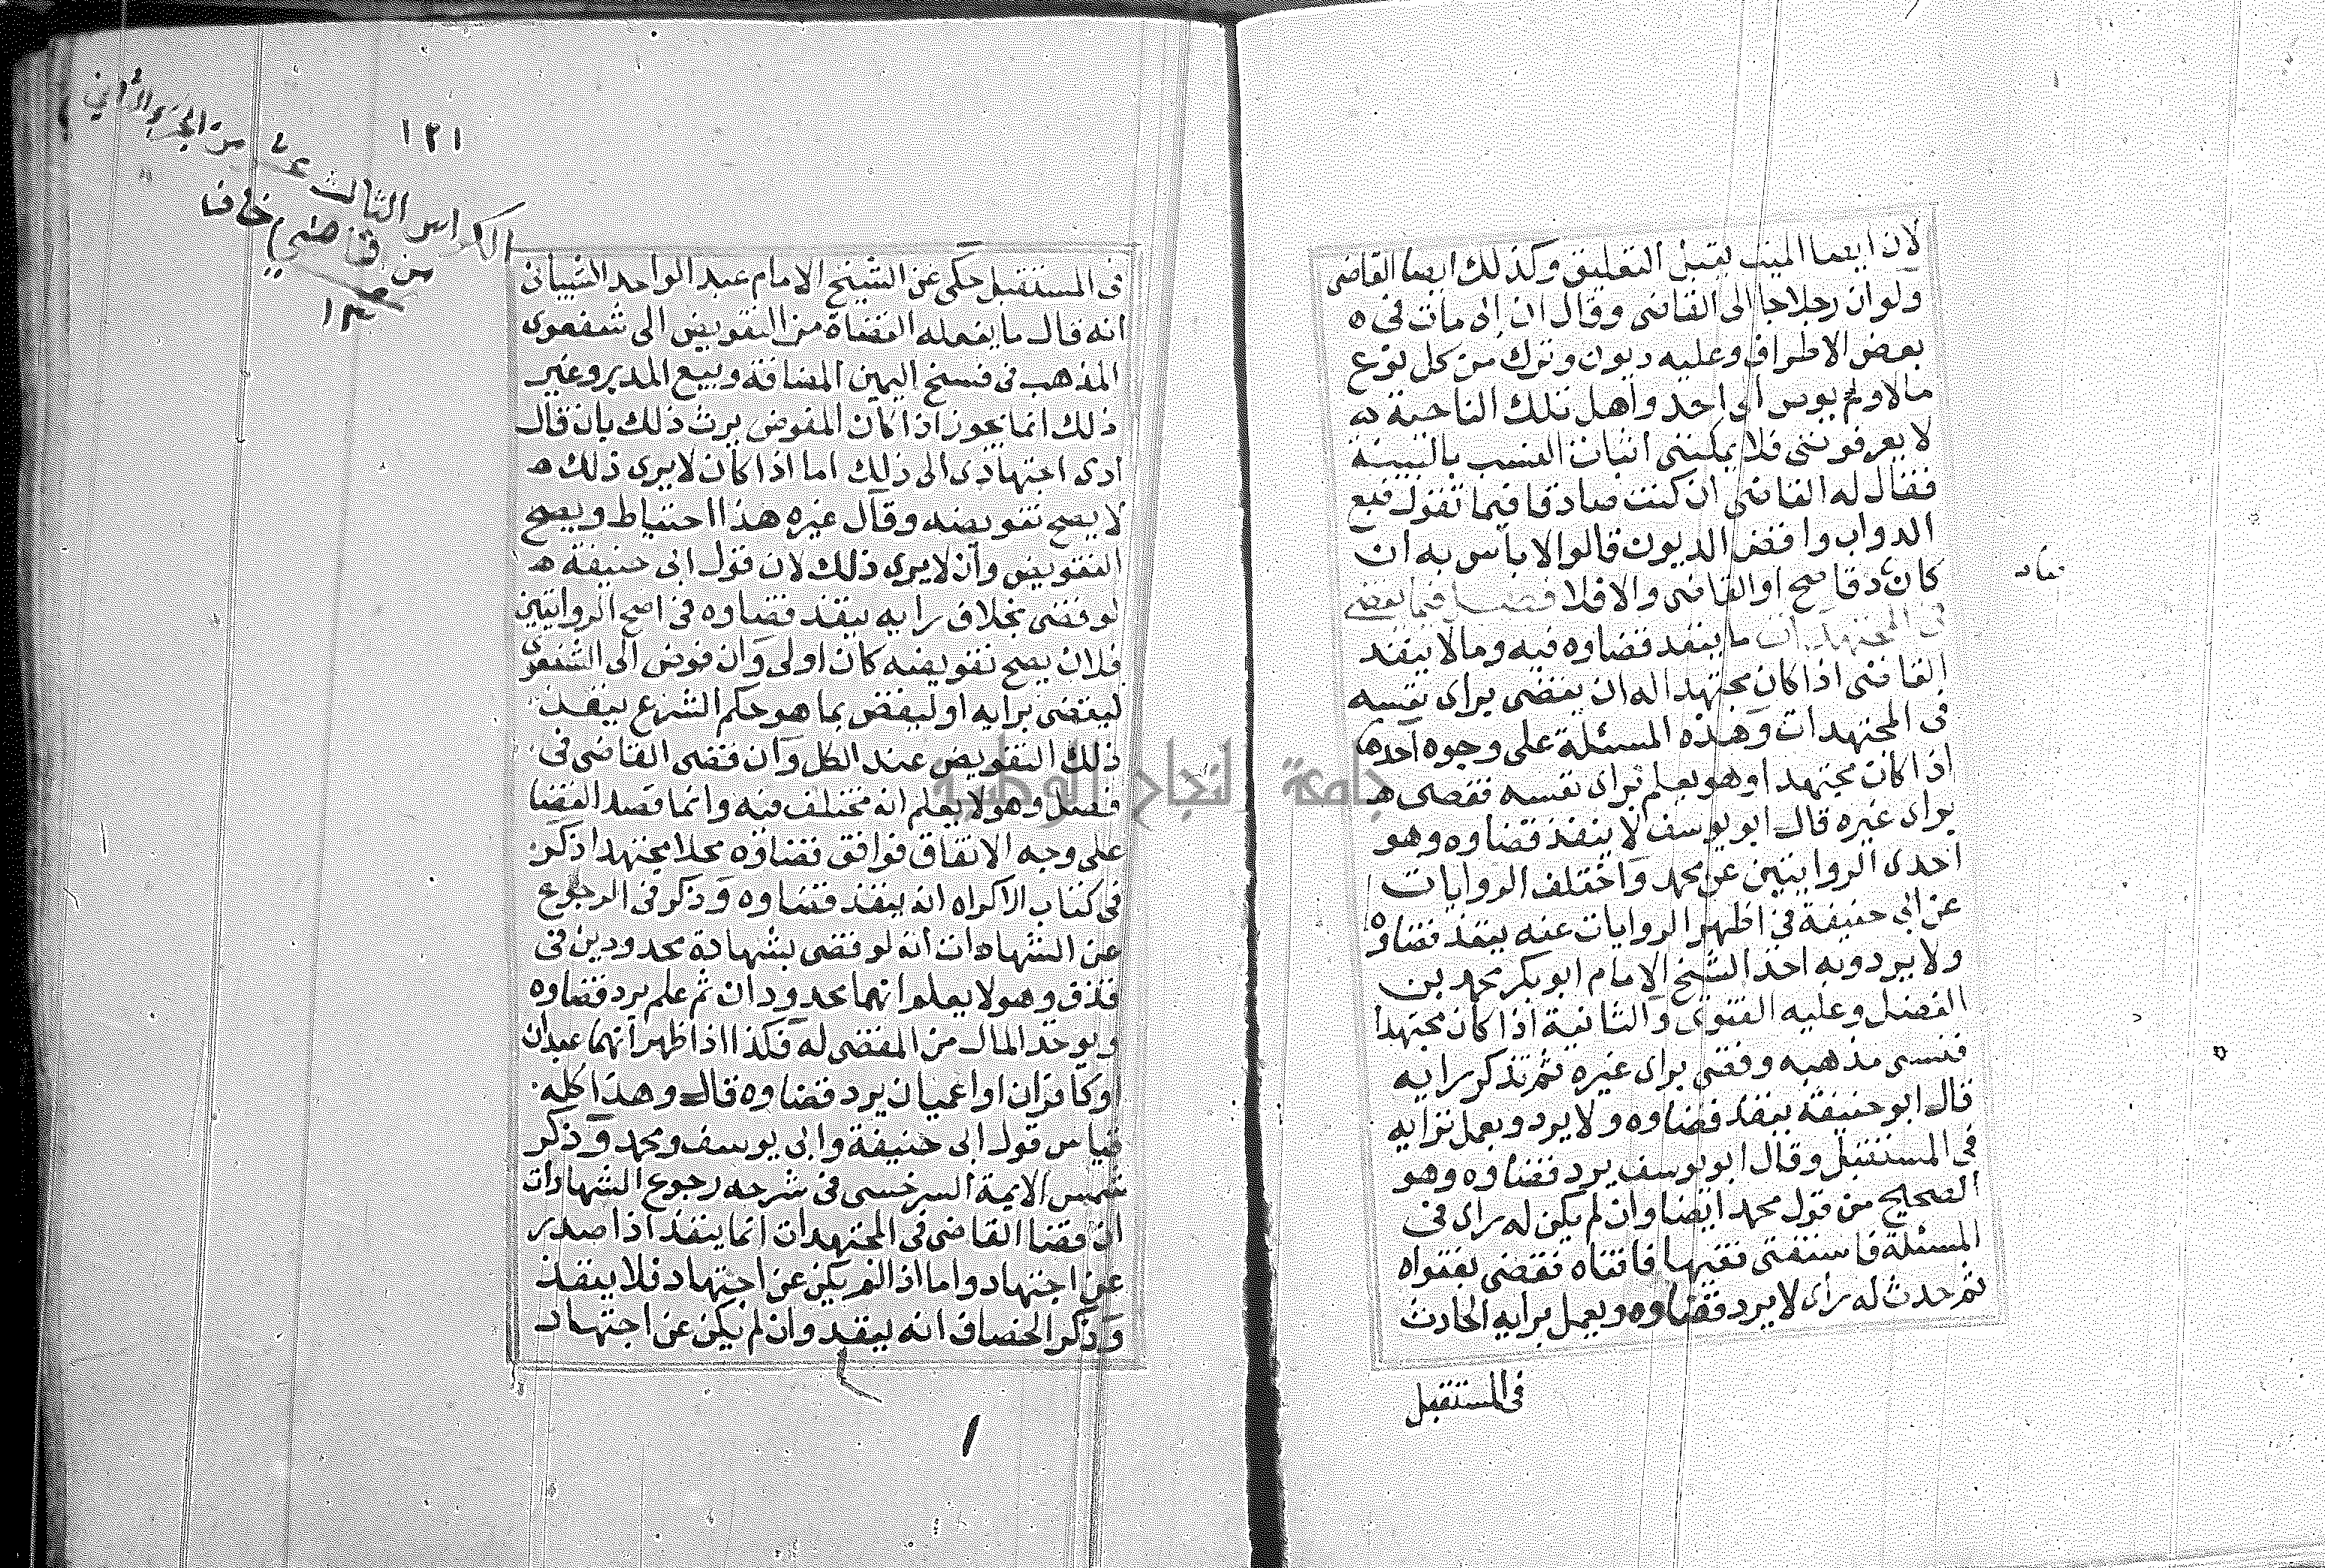 لان ايصا الميت يقبل التعليق وكذلك ايصا القاضى
ولو ان رجلا جا الى القاضى وقال ان ابى مات فى ه
بعض الاطراف وعليه ديون وترك من كل نوع
مالا ولم يوص الى احد واهل تلك الناحية
لا يعرفوننى فلا يمكننى اثبات النسب بالبينة
فقال له القاضى ان كنت صادقا فيما تقول فبع
الدواب واقض الديون قالوا لا باس به ان
كان صادقا صح امر القاضى والا فلا فصل فيما يقضى
فى المجتهدات وما ينفذ قضاوه فيه وما لا ينفذ
القاضى اذا كان مجتهدا له ان يقضى براى نفسه
فى المجتهدات وهذه المسئلة على وجوه احدها
اذا كان مجتهدا وهو يعلم براى نفسه فقضى ه
براى غيره قال ابو يوسف لا ينفذ قضاوه وهو
احدى الروايتين عن محمد واختلف الروايات
عن ابى حنيفة فى اظهر الروايات عنه ينفذ قضاوه
ولا يرد وبه اخذ الشيخ الامام ابو بكر محمد بن
الفضل وعليه الفتوى والثانية اذا كان مجتهدا
فنسى مذهبه وقضى براى غيره ثم تذكر رايه
قال ابو حنيفة ينفذ قضاوه ولا يرد ويعمل برايه
فى المستقبل وقال ابو يوسف يرد قضاوه وهو
الصحيح من قول محمد ايضا وان لم يكن له راى فى
المسئلة فاستفتى فقيها فافتاه فقضى بفتواه
ثم حدث له راى لا يرد قضاوه ويعمل برايه الحادث
فى المستقبل
١٢١
الكراس الثالث عشر من الجزء الثانى
من قاضى خان
١٣
فى المستقبل حكى عن الشيخ الامام عبد الواحد الشيبانى
انه قال ما يفعله القضاة من التفويض الى شفعوى
المذهب فى فسخ اليمين المضافة وبيع المدبر وغير
ذلك انما يجوز اذا كان المفوض يرى ذلك بان قال
ادى اجتهادى الى ذلك اما اذا كان لا يرى ذلك ه
لا يصح تفويضه وقال غيره هذا احتياط ويصح
التفويض وان لا يرى ذلك لان قول ابى حنيفة ه
لو قضى بخلاف رايه ينفذ قضاوه فى اصح الروايتين
فلان يصح تفويضه كان اولى وان فوض الى الشفعوى
ليقضى برايه او ليقض بما هو حكم الشرع ينفذ
ذلك التفويض عند الكل وان قضى القاضى فى
فصل وهو لا يعلم انه مختلف فيه وانما قصد القضا
على وجه الاتفاق فوافق قضاوه محلا مجتهدا ذكر
فى كتاب الاكراه انه ينفذ قضاوه وذكر فى الرجوع
عن الشهادات انه لو قضى بشهادة محدودين فى
قذف وهو لا يعلم انهما محدودان ثم علم يرد قضاوه
ويوخذ المال من المقضى له فكذا اذا ظهر انهما عبدان
او كافران او اعميان يرد قضاوه قال وهذا كله
قياس قول ابى حنيفة وابى يوسف ومحمد وذكر
شمس الايمة السرخسى فى شرحه رجوع الشهادات
ان قضا القاضى فى المجتهدات انما ينفذ اذا صدر
عن اجتهاد واما اذا لم يكن عن اجتهاد فلا ينفذ
وذكر الخصاف انه ينفذ وان لم يكن عن اجتهاد
جامعة النجاح الوطنية